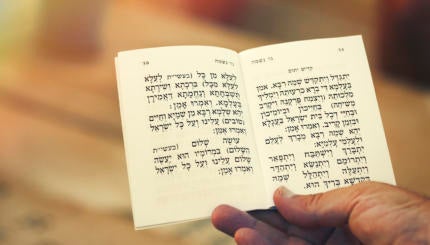 נר נשמה
קדיש יתום
יתגדל ויתקדש שמה רבא. אמן
בעלמא די ברא כרעותה וימליך
מלכותה (ויצמח פרקנה ויקרב
משיחה) בחייכון וביומיכון
ובחיי דכל בית ישראל בעגלא
ובזמן קריב, ואמרו אמן:
יהא שמה רבא מברך לעלם
ולעלמי עלמיא:
יתברך וישתבח ויתפאר
ויתרומם ויתנשא ויתהדר
ויתעלה ויתהלל שמה
דקדשא בריך הוא.
נר נשמה
לעלא מן כל (בעשי״ת לעלא
לעלא מכל) ברכתא ושירתא
תשבחתא ונחמתא דאמירן
בעלמא, ואמרו אמן:
יהא שלמא רבא מן שמיא וחיים
(טובים) עלינו ועל כל ישראל
ואמרו אמן:
עושה שלום (בעשי״ת
השלום) במרומיו הוא יעשה
שלום עלינו ועל כל ישראל
ואמרו אמן: